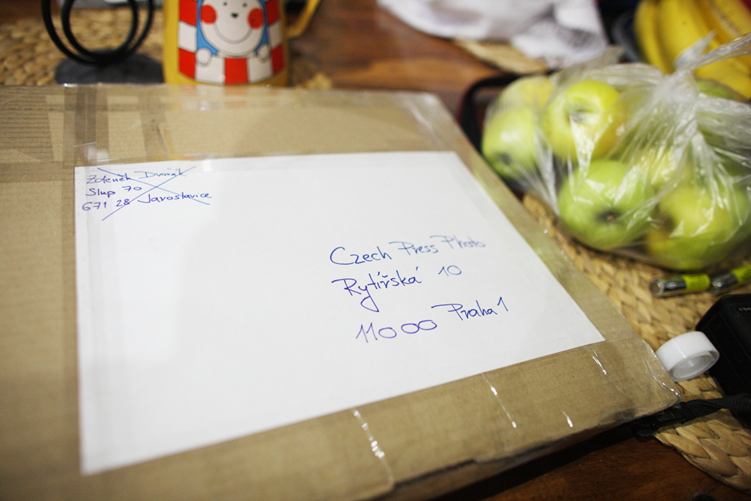 Zdeněk Dvořák
Slup 70
671 28 Jaroslavice
Czech Press Photo
Rytířská 10
11000 Praha 1